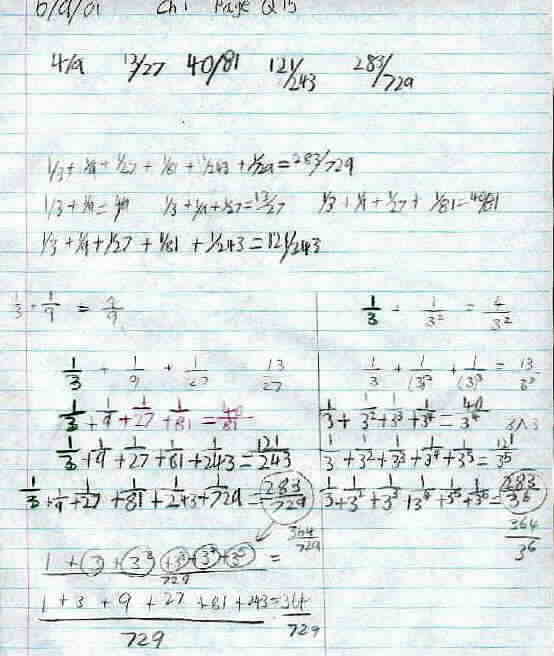 6/9/01 Ch 1 Page Q 15
4/9 13/27 40/81 121/243 283/729
1/3 + 1/9 + 1/27 + 1/81 + 1/243 + 1/729 = 283/729
1/3 + 1/9 = 4/9 1/3 + 1/9 + 1/27 = 13/27 1/3 + 1/9 + 1/27 + 1/81 = 40/81
1/3 + 1/9 + 1/27 + 1/81 + 1/243 = 121/243
1/3 + 1/9 = 4/9
1/3 + 1/9 + 1/27 13/27
1/3 + 1/9 + 1/27 + 1/81 = 40/81
1/3 + 1/9 + 1/27 + 1/81 + 1/243 = 121/243
1/3 + 1/9 + 1/27 + 1/81 + 1/243 + 1/729 = 283/729
364/729
1 + (3) + (3²) + (3³) + (3⁴) + (3⁵) / 729 =
1 + 3 + 9 + 27 + 81 + 243 / 729 = 364/729
1/3 + 1/3² = 4/3²
1/3 + 1/(3)² + 1/(3)³ = 13/3³
1/3 + 1/3² + 1/3³ + 1/3⁴ = 40/3⁴ 3^3
1/3 + 1/3² + 1/3³ + 1/3⁴ + 1/3⁵ = 121/3⁵
1/3 + 1/3² + 1/3³ + 1/3⁴ + 1/3⁵ + 1/3⁶ = 283/3⁶
364/3⁶